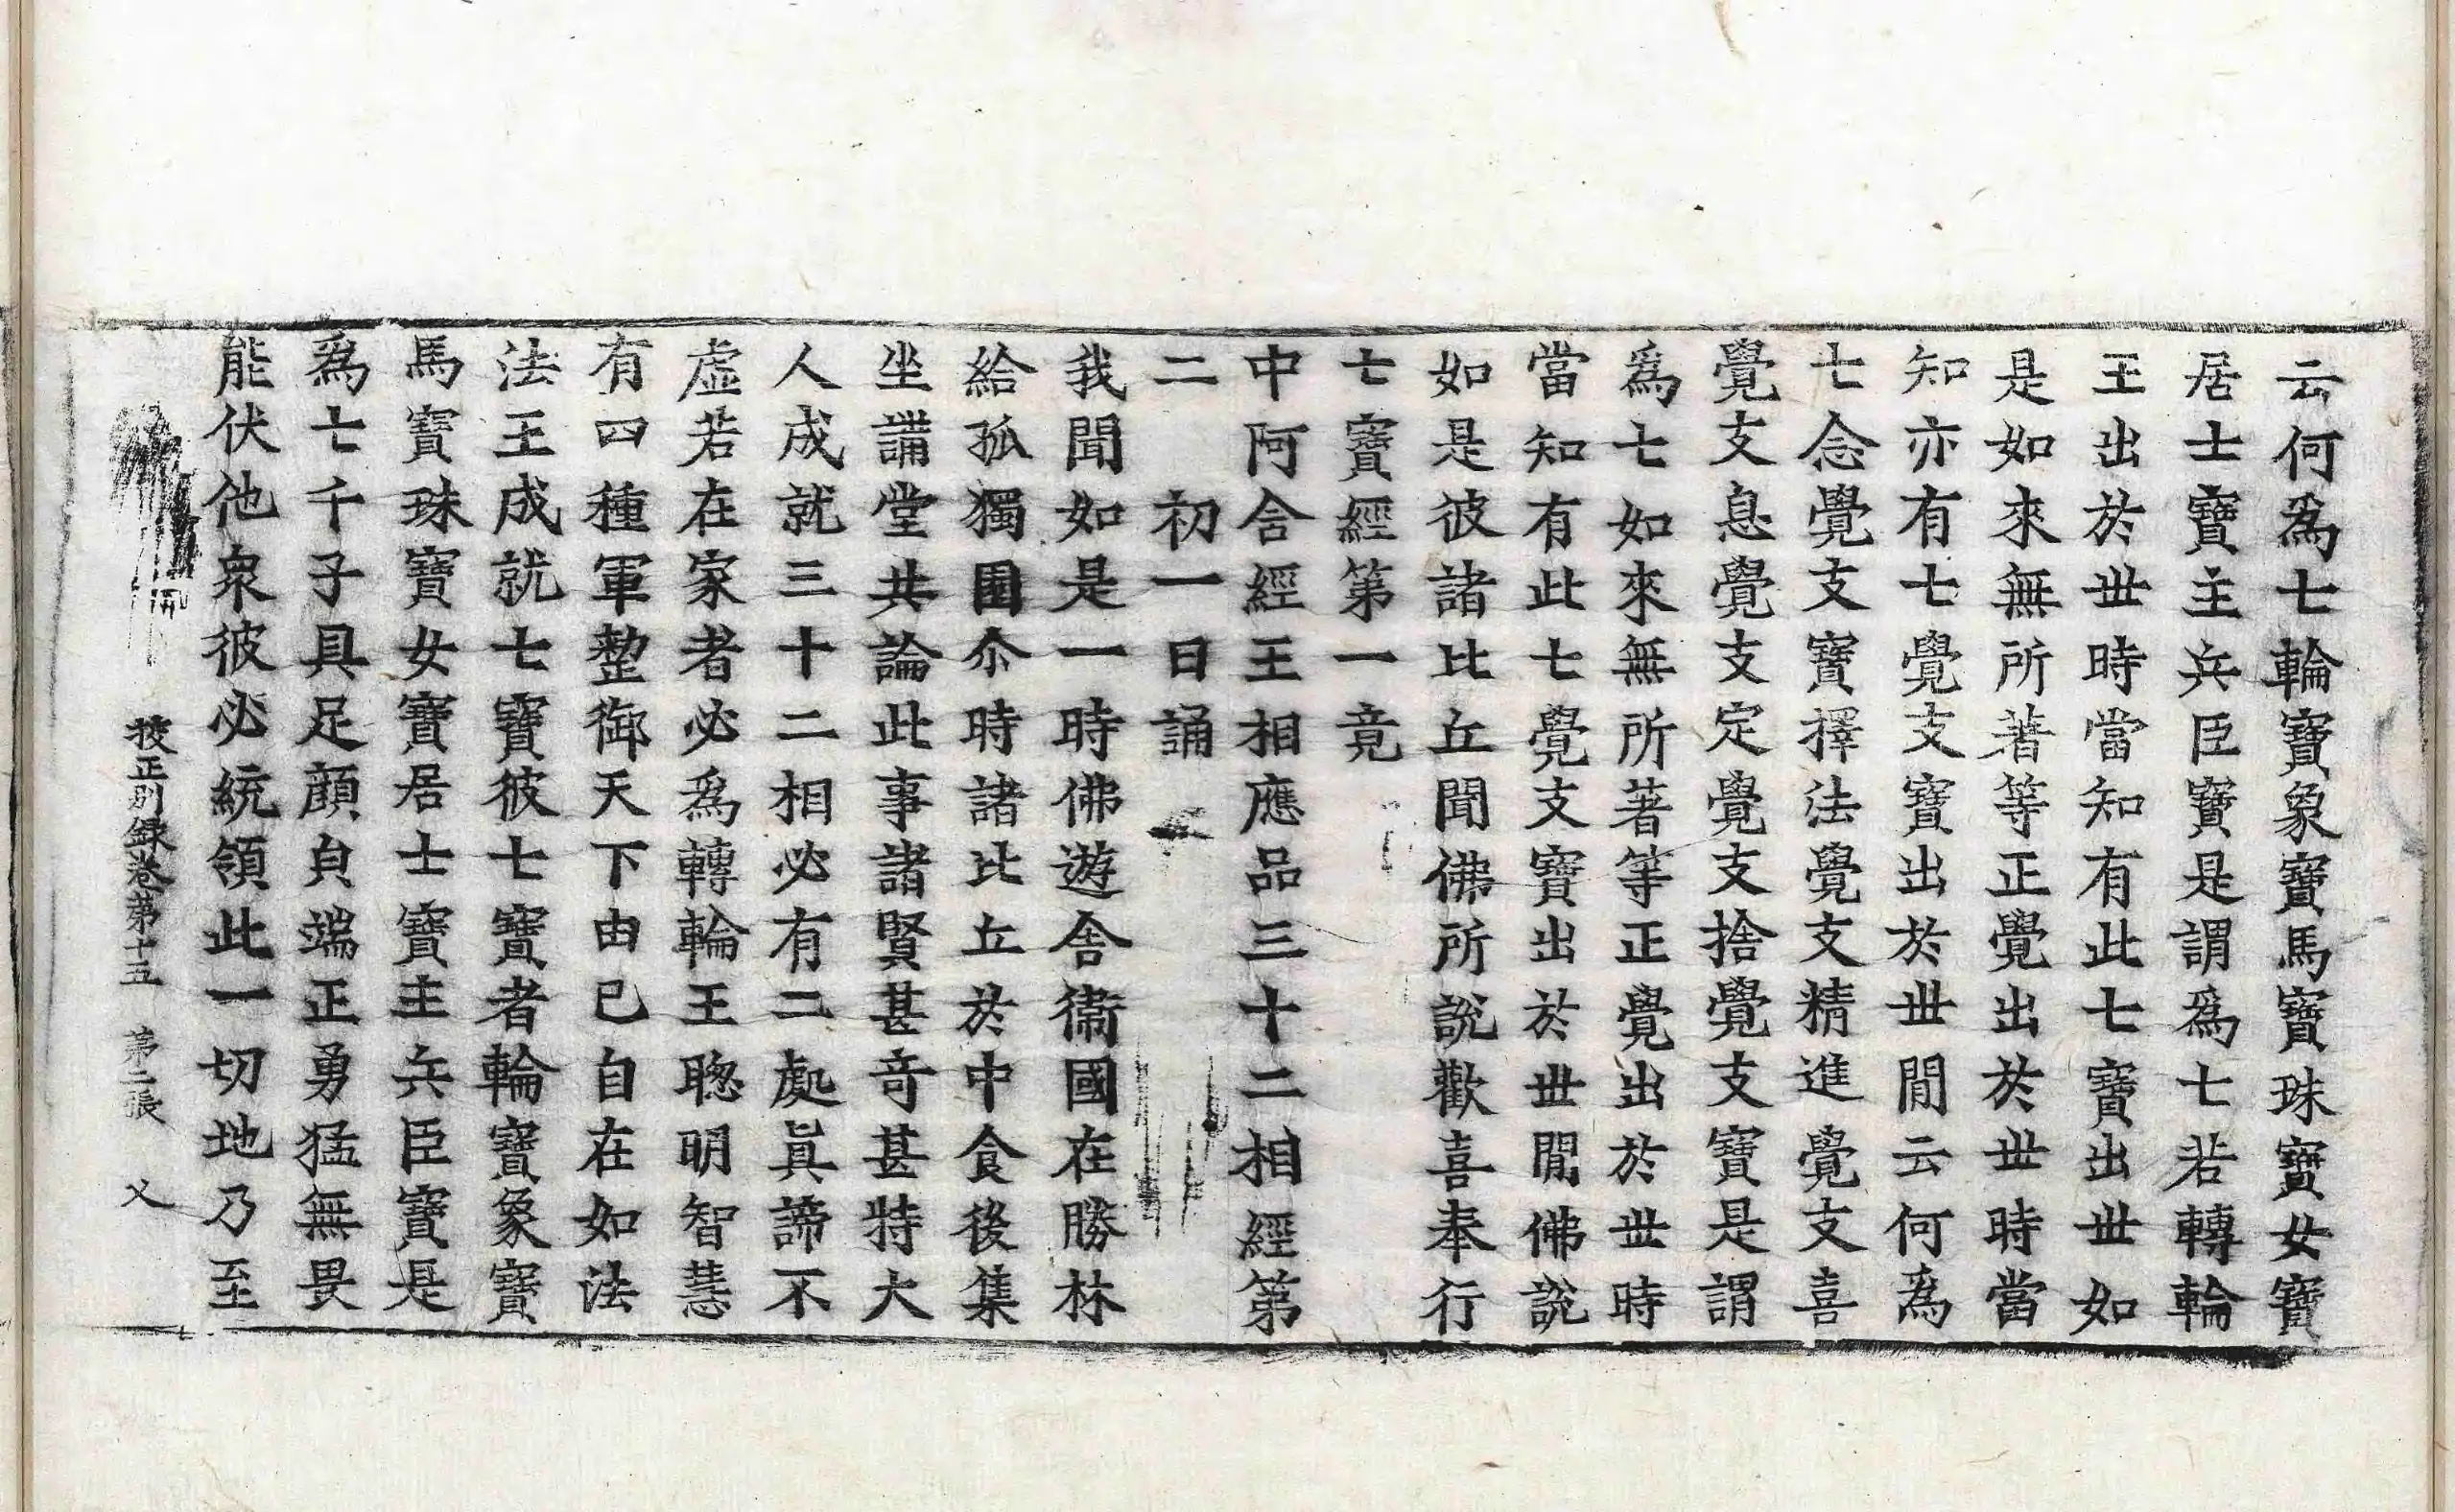 云何爲七輪寶象寶馬寶珠寶女寶
居士寶主兵臣寶是謂爲七若轉輪
王出於世時當知有此七寶出世如
是如來無所著等正覺出於世時當
知亦有七覺支寶出於世間云何爲
七念覺支寶擇法覺支精進覺支喜
覺支息覺支定覺支捨覺支寶是謂
爲七如來無所著等正覺出於世時
當知有此七覺支寶出於世間佛說
如是彼諸比丘聞佛所說歡喜奉行
七寶經第一竟
中阿含經王相應品三十二相經第
二　初一日誦
我聞如是一時佛遊舍衛國在勝林
給孤獨園尒時諸比丘於中食後集
坐講堂共論此事諸賢甚奇甚特大
人成就三十二相必有二處眞諦不
虛若在家者必爲轉輪王聦明智慧
有四種軍整御天下由已自在如法
法王成就七寶彼七寶者輪寶象寶
馬寶珠寶女寶居士寶主兵臣寶是
爲七千子具足顏皃端正勇猛無畏
能伏他衆彼必統領此一切地乃至
挍正別録卷第十五　第二張　乂